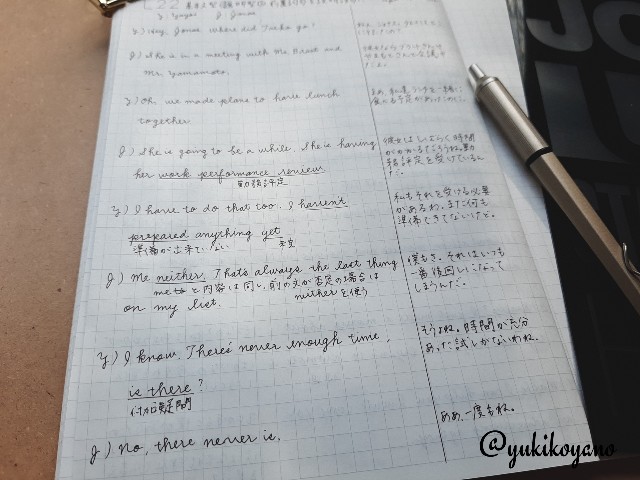 L22
Y) Hey, Jonas. Where did Tucko go?
J) She is in a meeting with Mr. Brest and
Mr. Yamamoto.
Y) Oh, we made plans to have lunch
together
J) She is going to be a while. She is having
her work performance review.
勤務評定
Y) I have to do that too. I haven't
prepared anything yet
準備が出来ていない 未定
J) Me neither. That's always the last thing
me to と内容は同じ、前の文が否定の場合は
neitherを使う
on my list.
Y) I know. There's never enough time,
is there?
付加疑問
J) No, there never is.
彼女はしばらく時間
がかかるでしょうね。勤
務評定を受けているん
だ。
私もそれを受ける必要
があるわ。まだ何も
準備できてないけど。
僕もさ。それはいつも
一番後回しになって
しまうんだ。
そうよね。時間が充分
あった試しがないわね。
ああ、一度もね。
@yukikoyano